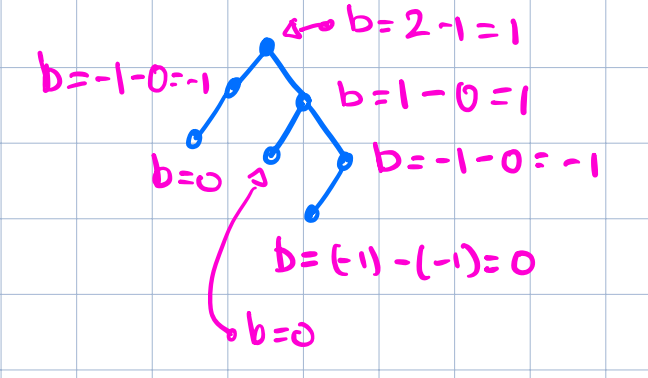 b=2-1=1
b=-1-0=-1
b=1-0=1
b=-1-0=-1
b=0
b=(-1)-(-1)=0
b=0